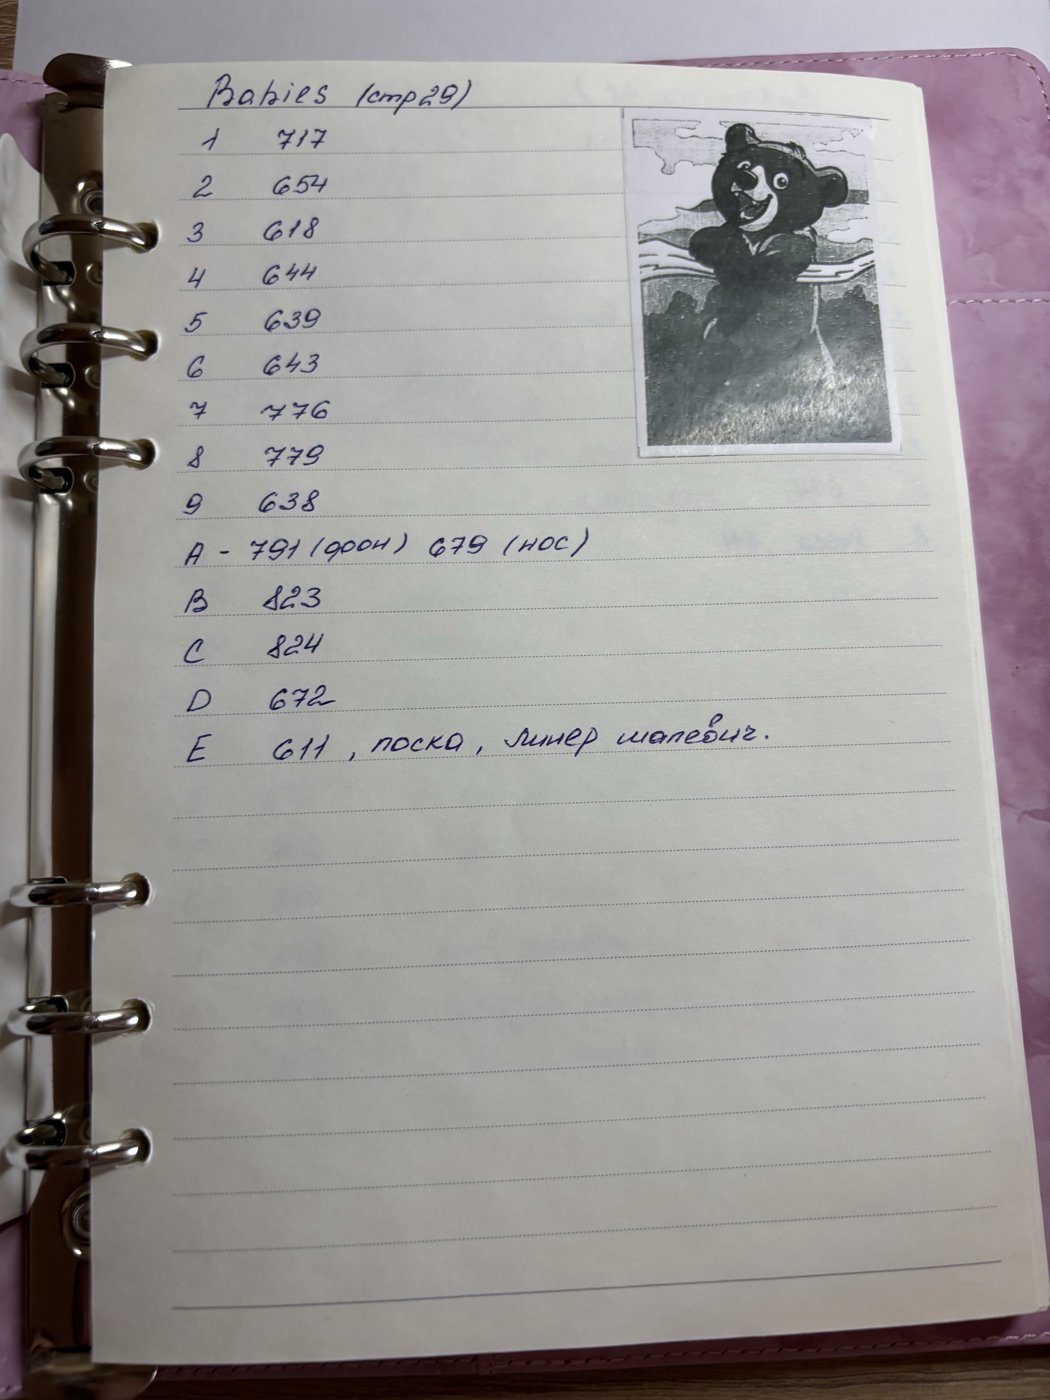 Babies (стр29)
1 717
2 654
3 618
4 644
5 639
6 643
7 776
8 779
9 638
A - 791 (фон) 679 (нос)
B 823
C 824
D 672
E 611, поска, линер малевич.